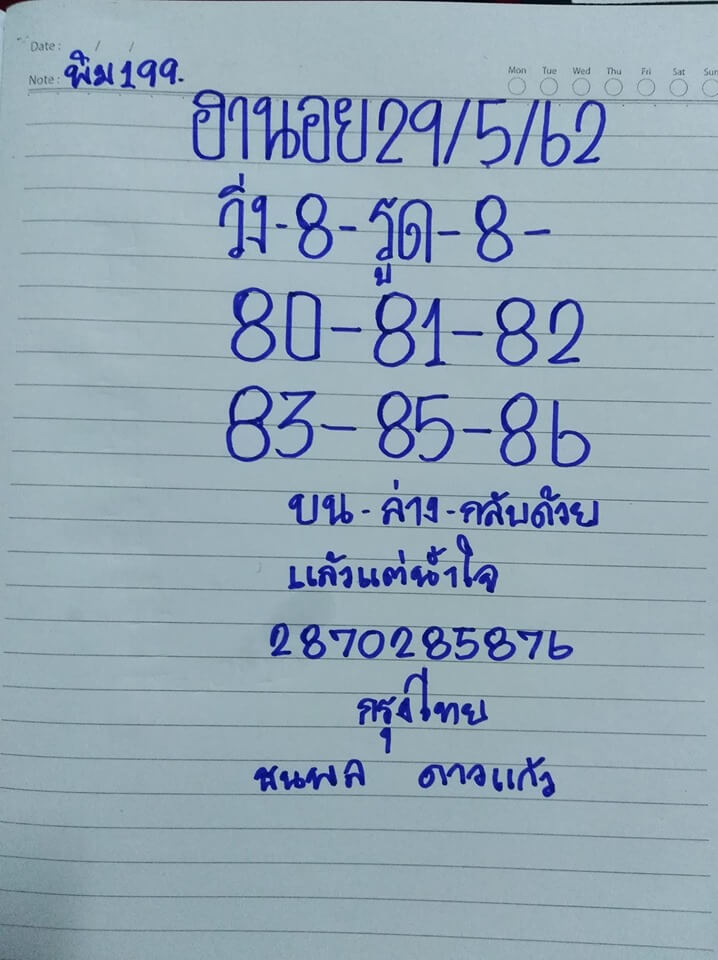 Date : / /
Note : พิม199.
Mon Tue Wed Thu Fri Sat Sun
ฮานอย29/5/62
วิ่ง-8-รูด-8-
80-81-82
83-85-86
บน-ล่าง-กลับด้วย
แล้วแต่น้ำใจ
2870285876
กรุงไทย
ชนพล ดาวแก้ว